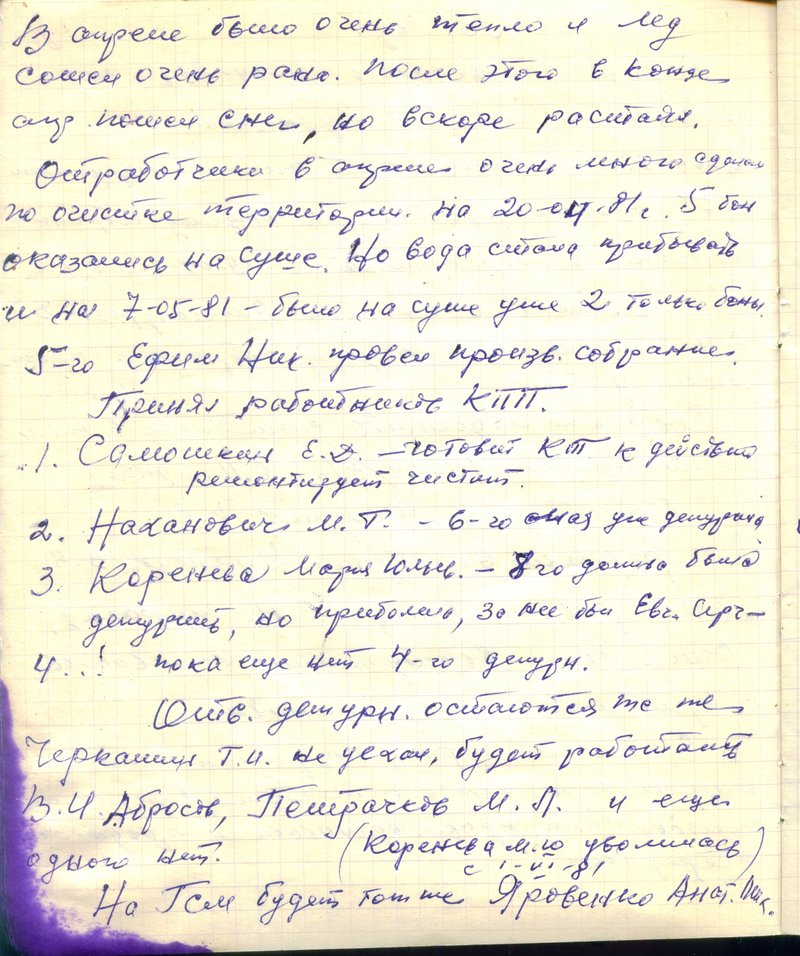 В апреле было очень тепло и лед
сошел очень рано. После этого в конце
апр. пошел снег, но вскоре растаял.
Отработчики в апреле очень много сделали
по очистке территории. На 20-04-81г. 5 бон
оказались на суше. Но вода стала прибывать
и на 7-05-81 - было на суше уже 2 только боны.
5-го Ефим Ник. провел произв. собрание.
Принял работников КПП.
1. Самошкин Е.Д. - готовит КТ к действию
ремонтирует чистит.
2. Наханович М.Т. - 6-го мая уже дежурила
3. Коренева Мария Юльев. - 8го должна была
дежурить, но приболела, за нее был Евг. Серг-
4..! пока еще нет 4-го дежурн.
Отв. дежурн. остаются те же
Черкашин Т.И. не уехал, будет работать
В.И. Абросов, Петрачков М.П. и еще
одного нет. (Коренева М.Ю уволилась
с 1-VI-81)
На ГСМ будет тот же Яровенко Анат.